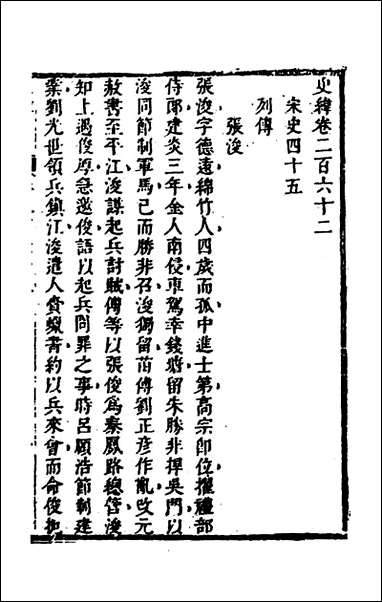 史緯卷二百六十二
宋史四十五
列傳
張浚
張浚字德遠綿竹人四歲而孤中進士第高宗即位擢禮部
侍郎建炎三年金人南侵車駕幸錢塘留朱勝非捍吳門以
浚同節制軍馬已而勝非召浚獨留苗傅劉正彥作亂改元
赦書至平江浚謀起兵討賊傅等以張俊為秦鳳路總管浚
知上遇俊厚急邀俊語以起兵問罪之事時呂頤浩節制建
業劉光世領兵鎮江浚遣人賫蠟書約以兵來會而命俊扼